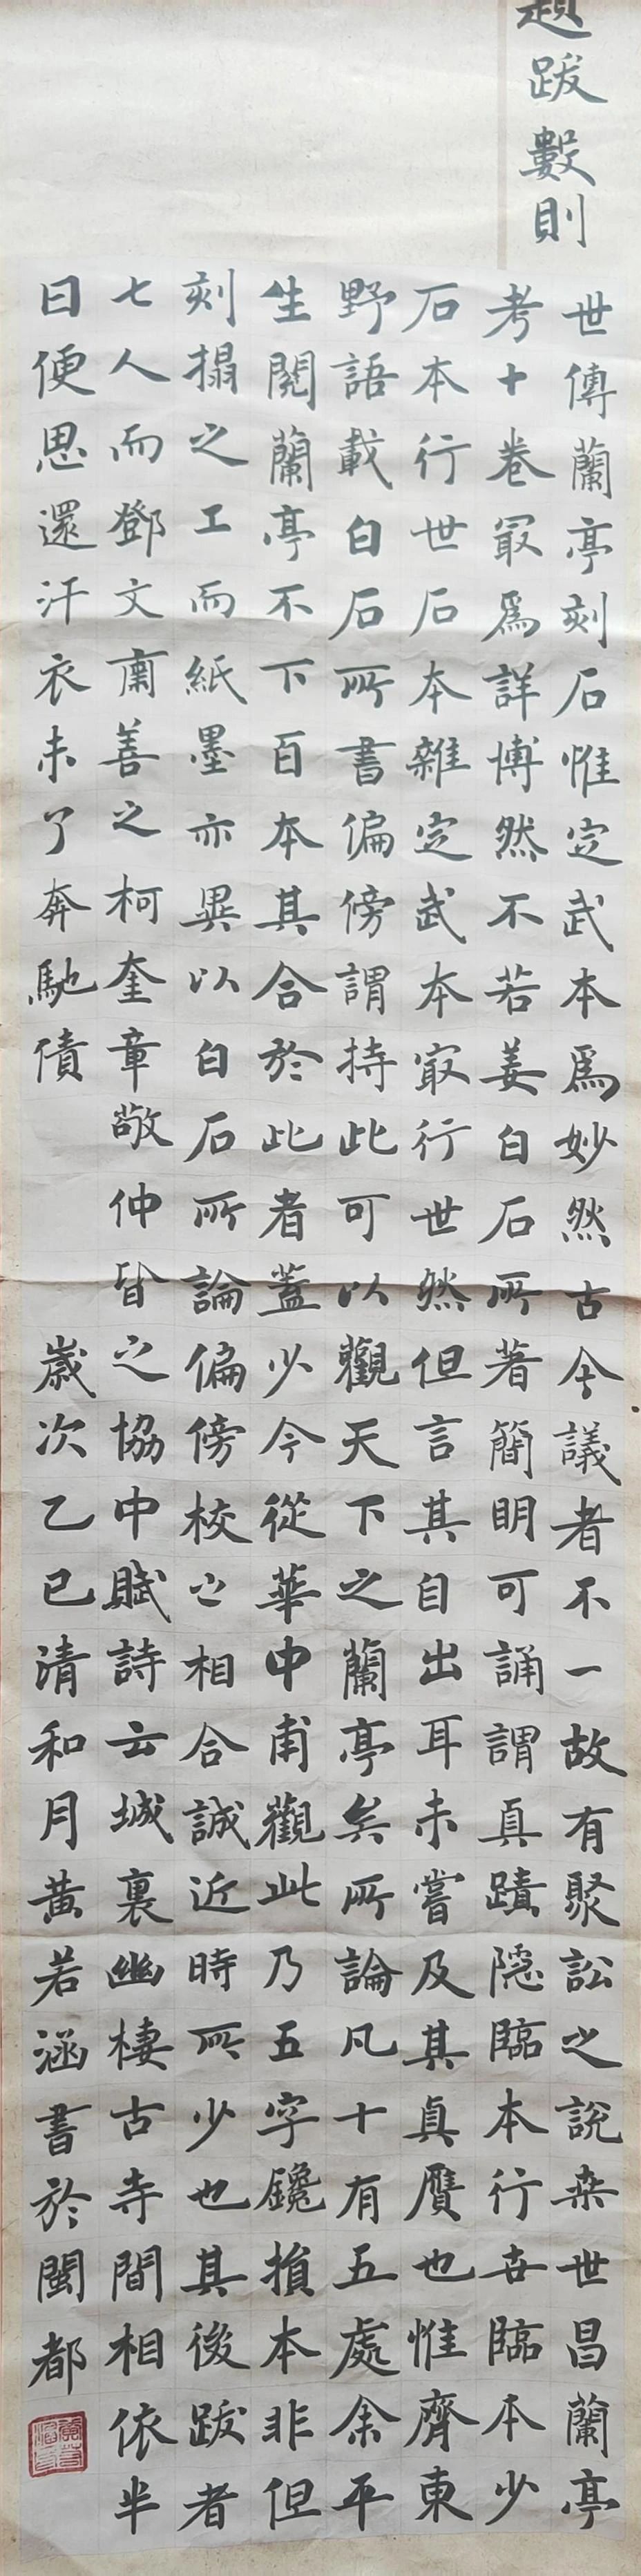 題跋數則
世傳蘭亭刻石惟定武本爲妙然古今議者不一故有聚訟之說桒世昌蘭亭
考十卷冣爲詳博然不若姜白石所著簡明可誦謂真蹟隱臨本行世臨本少
石本行世石本雜定武本冣行世然但言其自出耳未嘗及其真贋也惟齊東
野語載白石所書偏傍謂持此可以觀天下之蘭亭矣所論凡十有五處余平
生閱蘭亭不下百本其合於此者蓋少今從華中甫觀此乃五字鑱損本非但
刻搨之工而紙墨亦異以白石所論偏傍校之相合誠近時所少也其後跋者
七人而鄧文肅善之柯奎章敬仲皆之協中賦詩云城裏幽棲古寺間相依半
日便思還汗衣未了奔馳債 歲次乙巳清和月黃若涵書於閩都